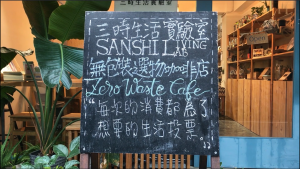 三時生活實驗室
三時生活實驗室
SANSHI LIVING
LAB
無包裝選物咖啡店
Zero Waste Cafe
“每次的消費都為了
想要的生活投票”